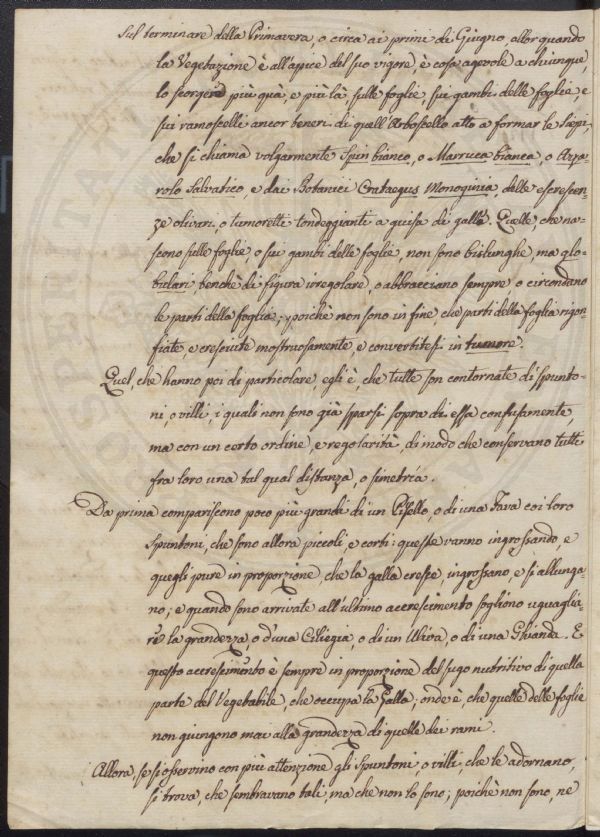 Sul terminare della Primavera, o circa ai primi di Giugno, allor quando
la Vegetazione è all'apice del suo vigore, è cosa agevole a chiunque,
lo scorgere più quà, e più là, sulle foglie, sui gambi delle foglie, e
sui ramoscelli ancor teneri di quell'Arboscello atto a formar le siepi,
che si chiama volgarmente Spin bianco, o Marruca bianca, o Azza-
rolo Salvatico, e dai Botanici Crataegus Monoginia, delle escrescen-
ze olivari, o tumoretti tondeggianti a guisa di galla. Quelle, che na-
scono sulle foglie, o sui gambi delle foglie, non sono bislunghe, ma glo-
bulari, benchè di figura irregolare, o abbracciano sempre, o circondano
le parti della foglia; poichè non sono in fine, che parti della foglia rigon-
fiate, e cresciute mostruosamente, e convertitesi in tumore.
Quel, che hanno poi di particolare, egli è, che tutte son contornate di spunto-
ni, o villi, i quali non sono già sparsi sopra di essa confusamente,
ma con un certo ordine, e regolarità, di modo che conservano tutti
fra loro una tal qual distanza, o simetrìa.
Da prima compariscono poco più grandi di un Pisello, o di una Fava coi loro
spuntoni, che sono allora piccoli, e corti: queste vanno ingrossando, e
quegli pure in proporzione, che la galla cresce, ingrossano, e si allunga-
no; e quando sono arrivate all'ultimo accrescimento sogliono uguaglia-
re la grandezza, o d'una Ciliegia, o di un Uliva, o di una Ghianda. E
questo accrescimento è sempre in proporzione del sugo nutritivo di quella
parte del Vegetabile, che occupa la Galla; onde è, che quelle delle foglie
non giungono mai alla grandezza di quelle dei rami.
Allora, se si osservino con più attenzione gli Spuntoni, o villi, che le adornano,
si trova, che sembravano tali, ma che non lo sono; poichè non sono, nè